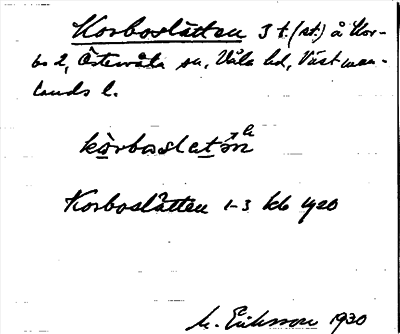 Korboslätten 3 t. (st.) å Kor-
bo 2, Östervåla sn, Våla hd, Västman-
lands l.
kòrboslet̀n a
Korboslåtten 1-3 kb 1920
M. Eriksson 1930